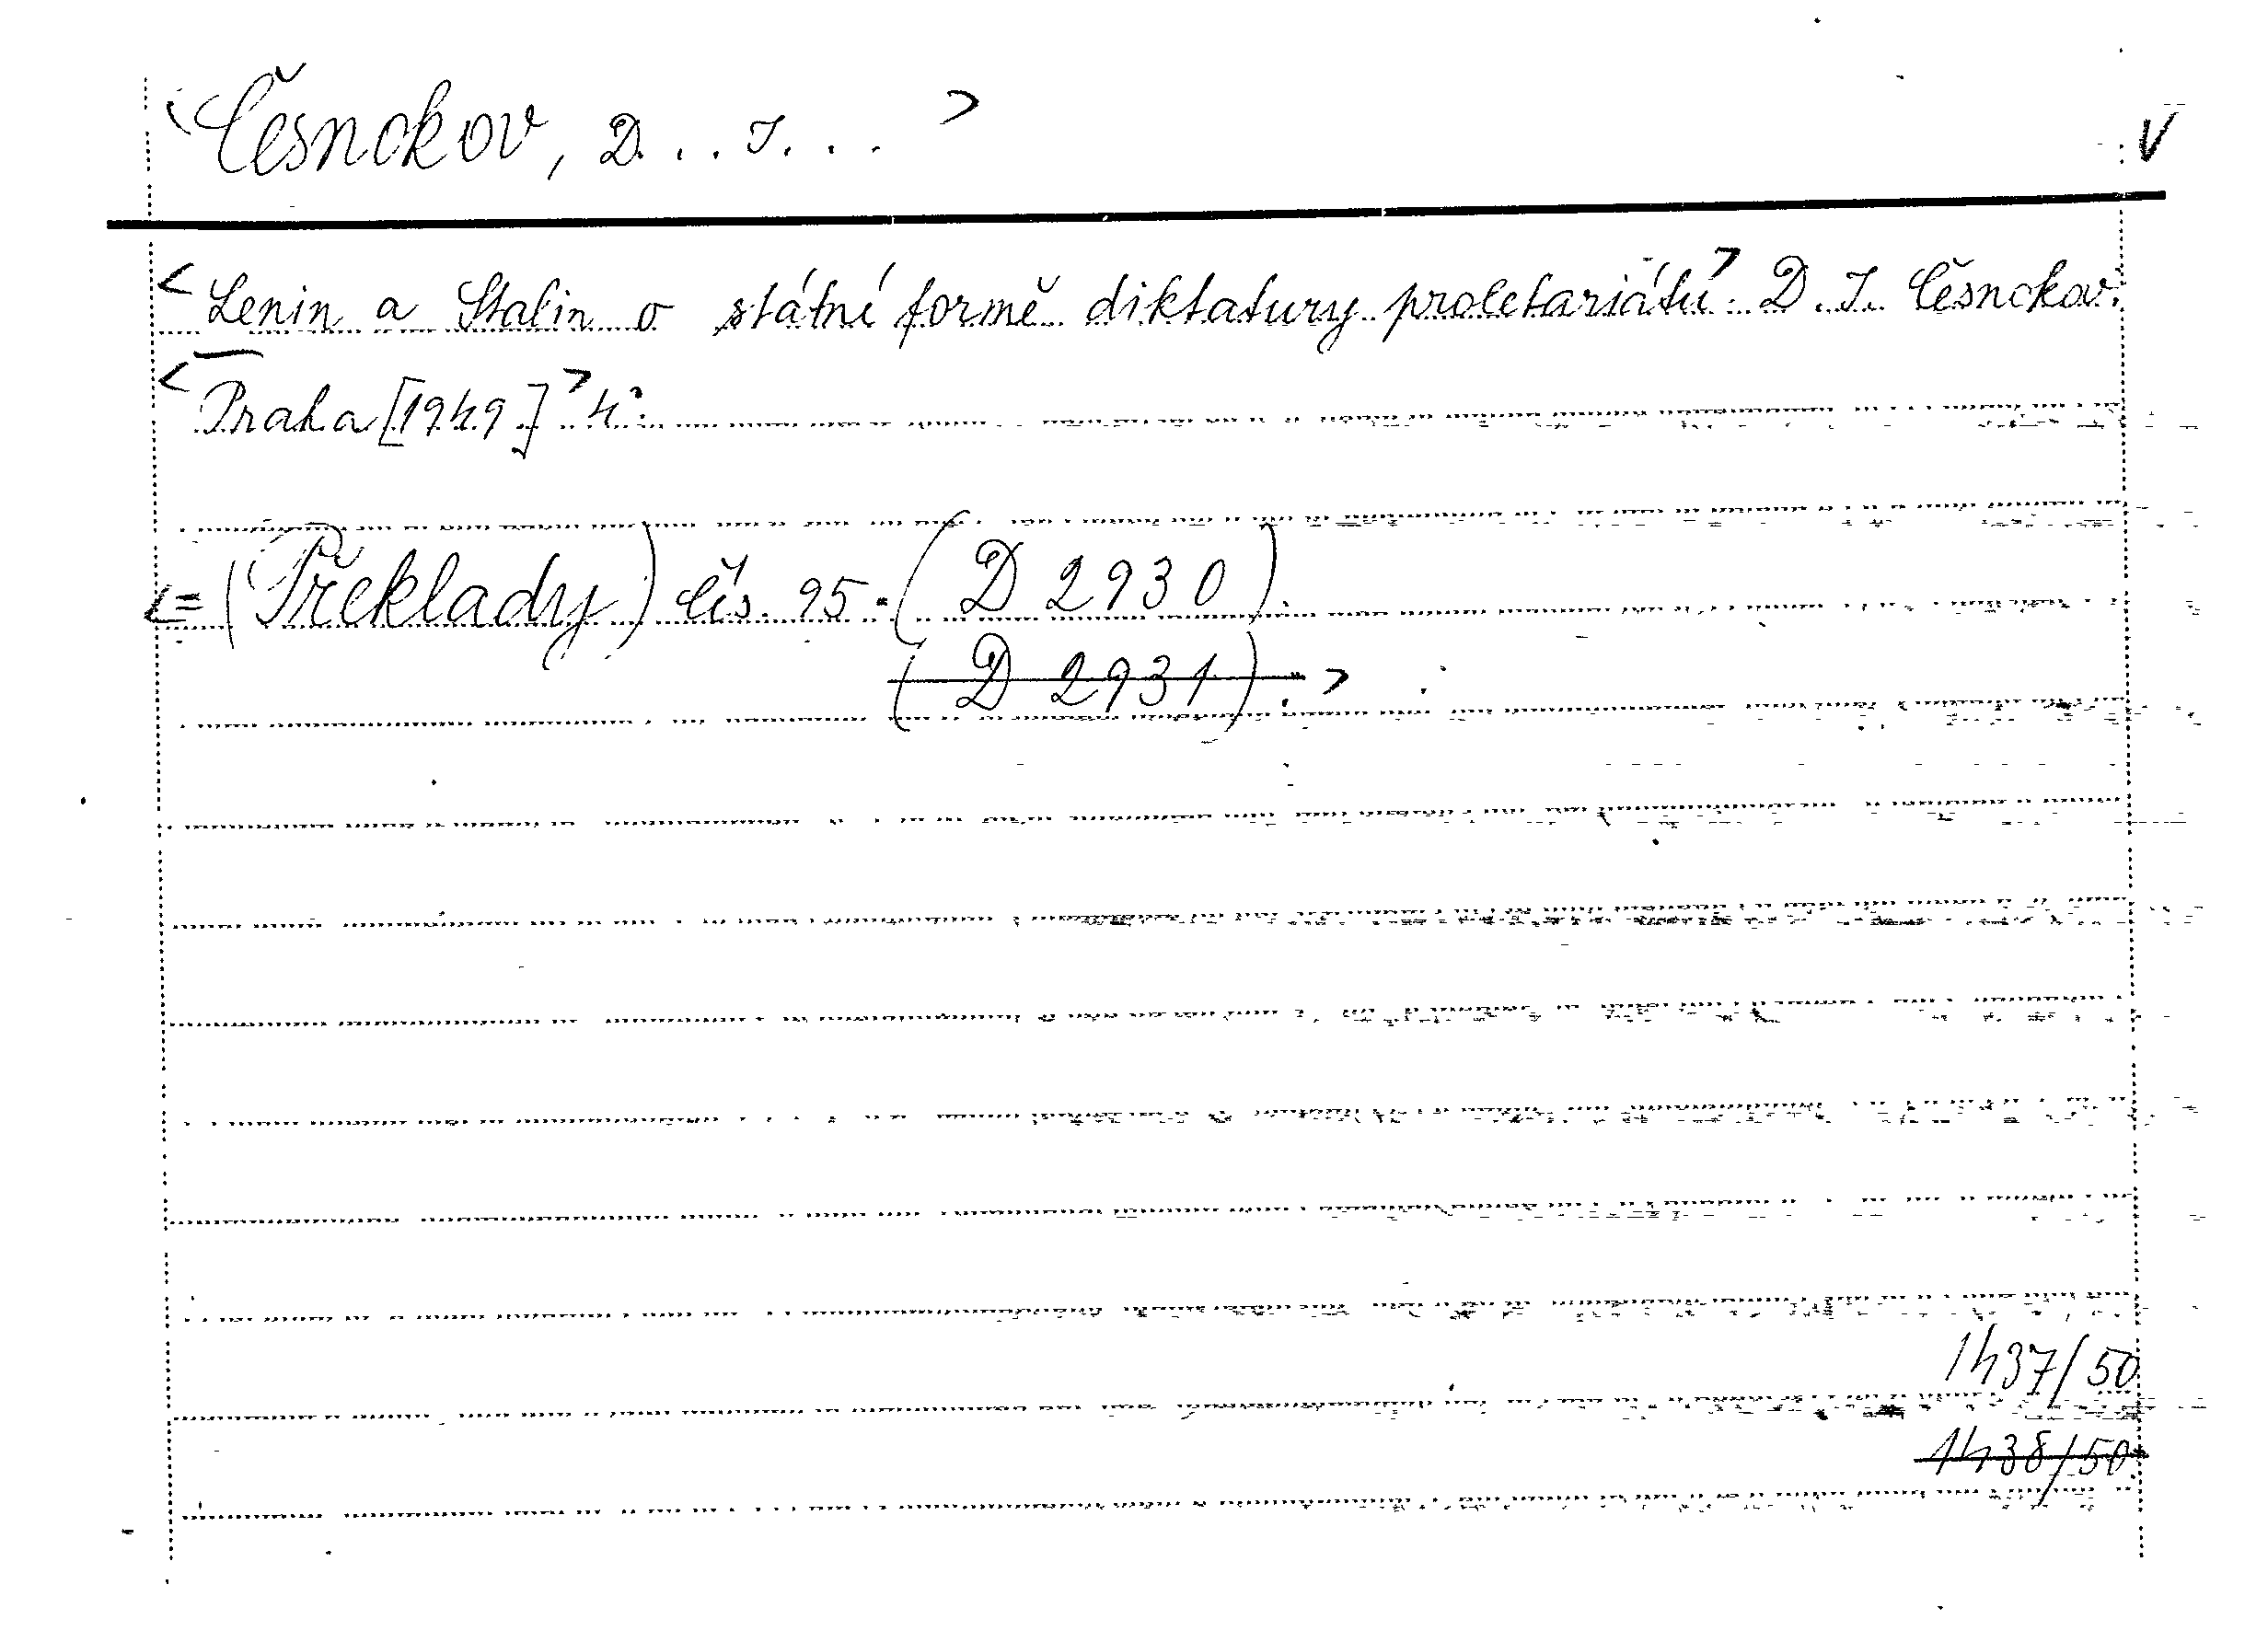 <Česnokov, D... J... > V
<Lenin a Stalin o státní formě diktatury proletariátu> D. J. Česnokov.
<Praha [1949]> 4°.
<= (Překlady) čís. 95. (D 2930).
(D 2931).>
1437/50
1438/50.